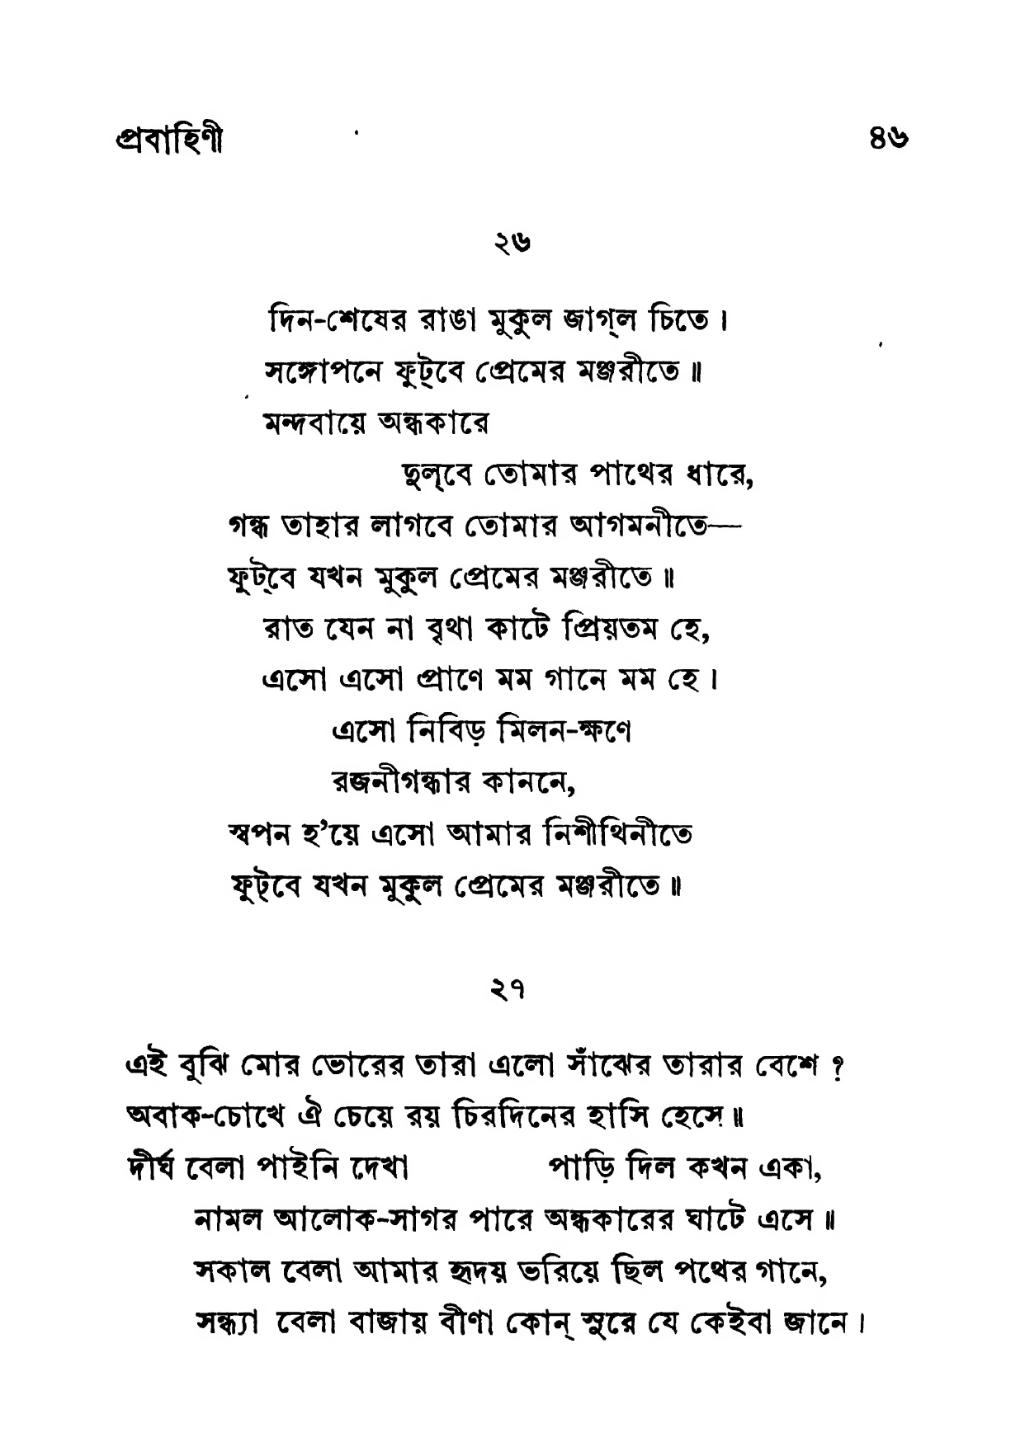 প্রবাহিণী ৪৬
২৬
দিন-শেষের রাঙা মুকুল জাগ্‌ল চিতে।
সঙ্গোপনে ফুট্‌বে প্রেমের মঞ্জরীতে॥
মন্দবায়ে অন্ধকারে
দুল্‌বে তোমার পাথের ধারে,
গন্ধ তাহার লাগবে তোমার আগমনীতে—
ফুট্‌বে যখন মুকুল প্রেমের মঞ্জরীতে॥
রাত যেন না বৃথা কাটে প্রিয়তম হে,
এসো এসো প্রাণে মম গানে মম হে।
এসো নিবিড় মিলন-ক্ষণে
রজনীগন্ধার কাননে,
স্বপন হ’য়ে এসো আমার নিশীথিনীতে
ফুট্‌বে যখন মুকুল প্রেমের মঞ্জরীতে॥
২৭
এই বুঝি মোর ভোরের তারা এলো সাঁঝের তারার বেশে ?
অবাক-চোখে ঐ চেয়ে রয় চিরদিনের হাসি হেসে॥
দীর্ঘ বেলা পাইনি দেখা পাড়ি দিল কখন একা,
নামল আলোক-সাগর পারে অন্ধকারের ঘাটে এসে॥
সকাল বেলা আমার হৃদয় ভরিয়ে ছিল পথের গানে,
সন্ধ্যা বেলা বাজায় বীণা কোন্ সুরে যে কেইবা জানে।